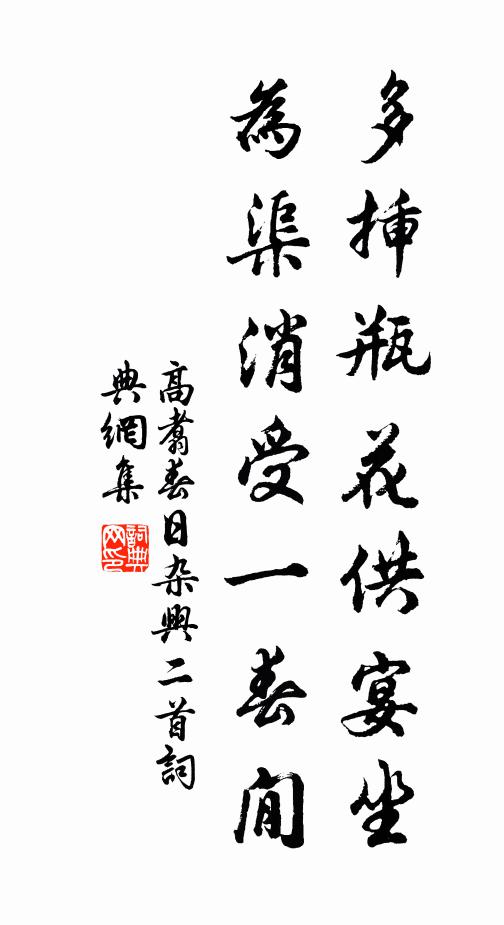 多插瓶花供宴坐
為渠消受一春閒
高翥春日杂興二首詞
典網集
詞典
网印